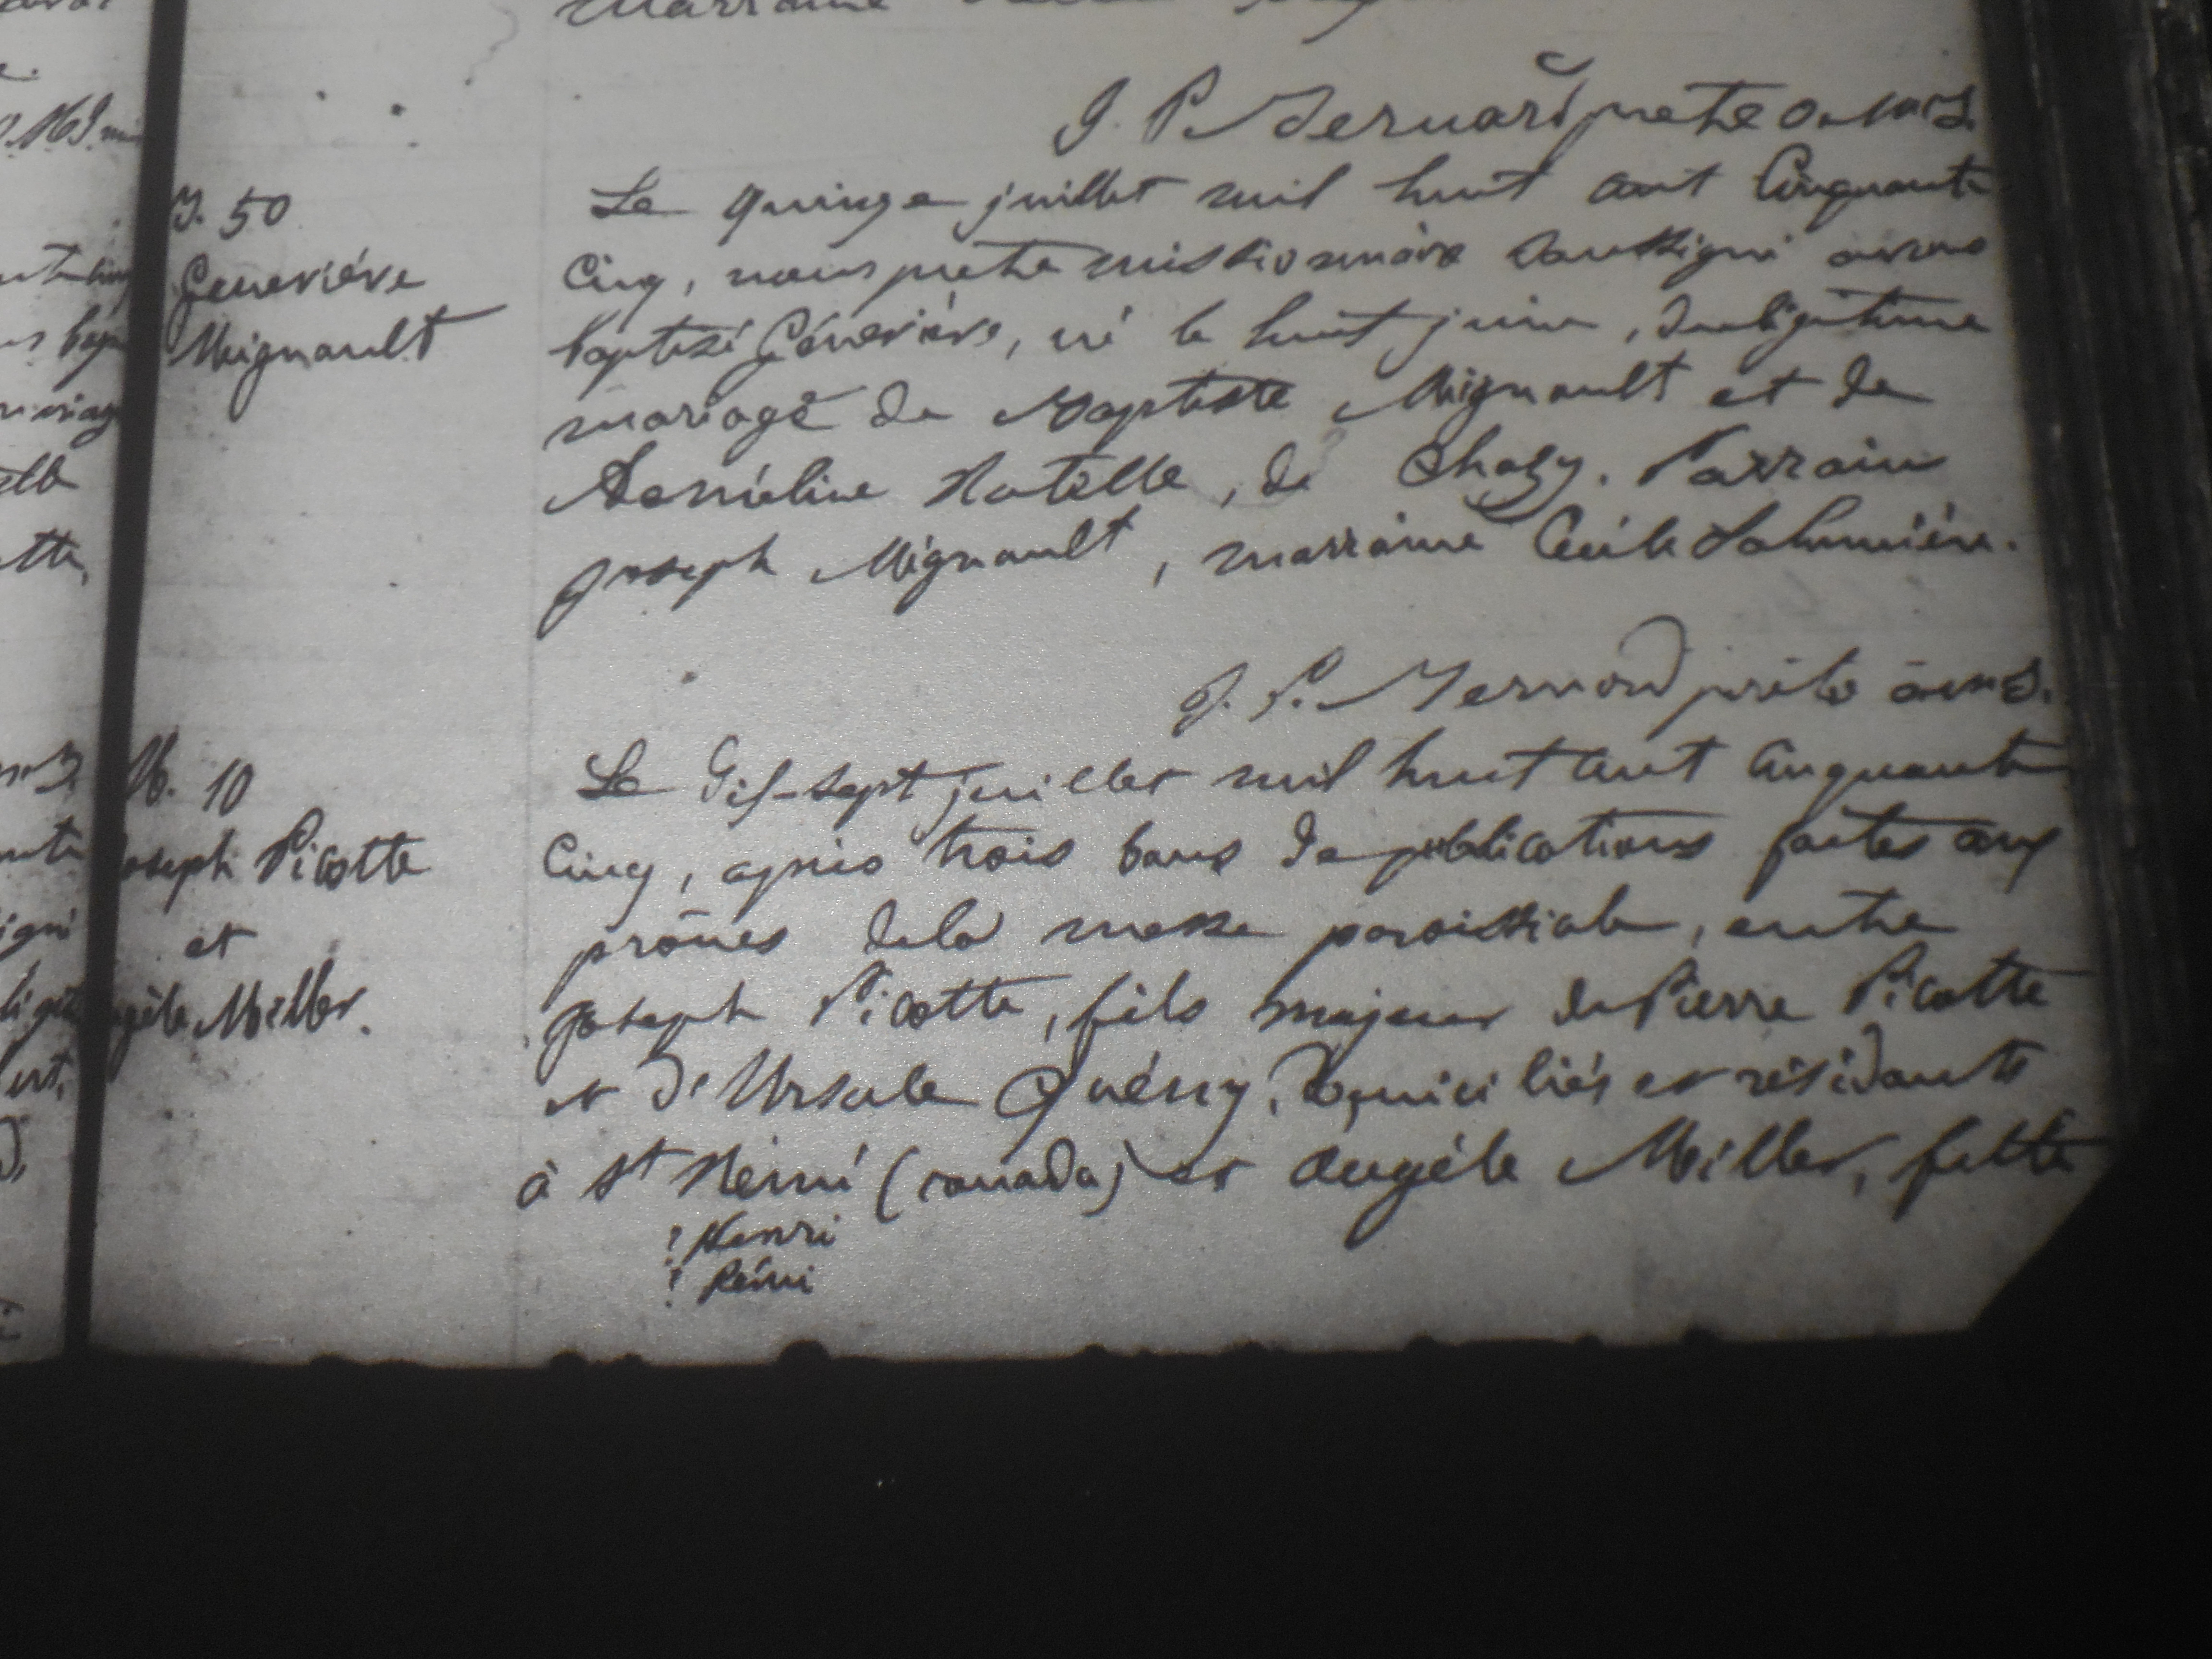 Marraine
J. P. Bernard prêtre o.m.I.
B. 50
Geneviève
Mignault
Le quinze juillet mil huit cent cinquante
cinq, nous prêtre missionnaire soussigné avons
baptisé Géneviève, né le huit juin, du légitime
mariage de Baptiste Mignault et de
Herméline Hotelle, de Chazy. Parrain
Joseph Mignault, marraine Cécile Salumière.
J. P. Bernard prêtre o.m.I.
M. 10
Joseph Picotte
et
Angèle Miller.
Le dix-sept juillet mil huit cent cinquante
cinq, après trois bans de publications faites aux
prônes de la messe paroissiale, entre
Joseph Picotte, fils majeur de Pierre Picotte
et d'Ursule Quérry, domiciliés et résidants
à St Hémi (Canada) et Angèle Miller, fille
? Henri
? Rémi